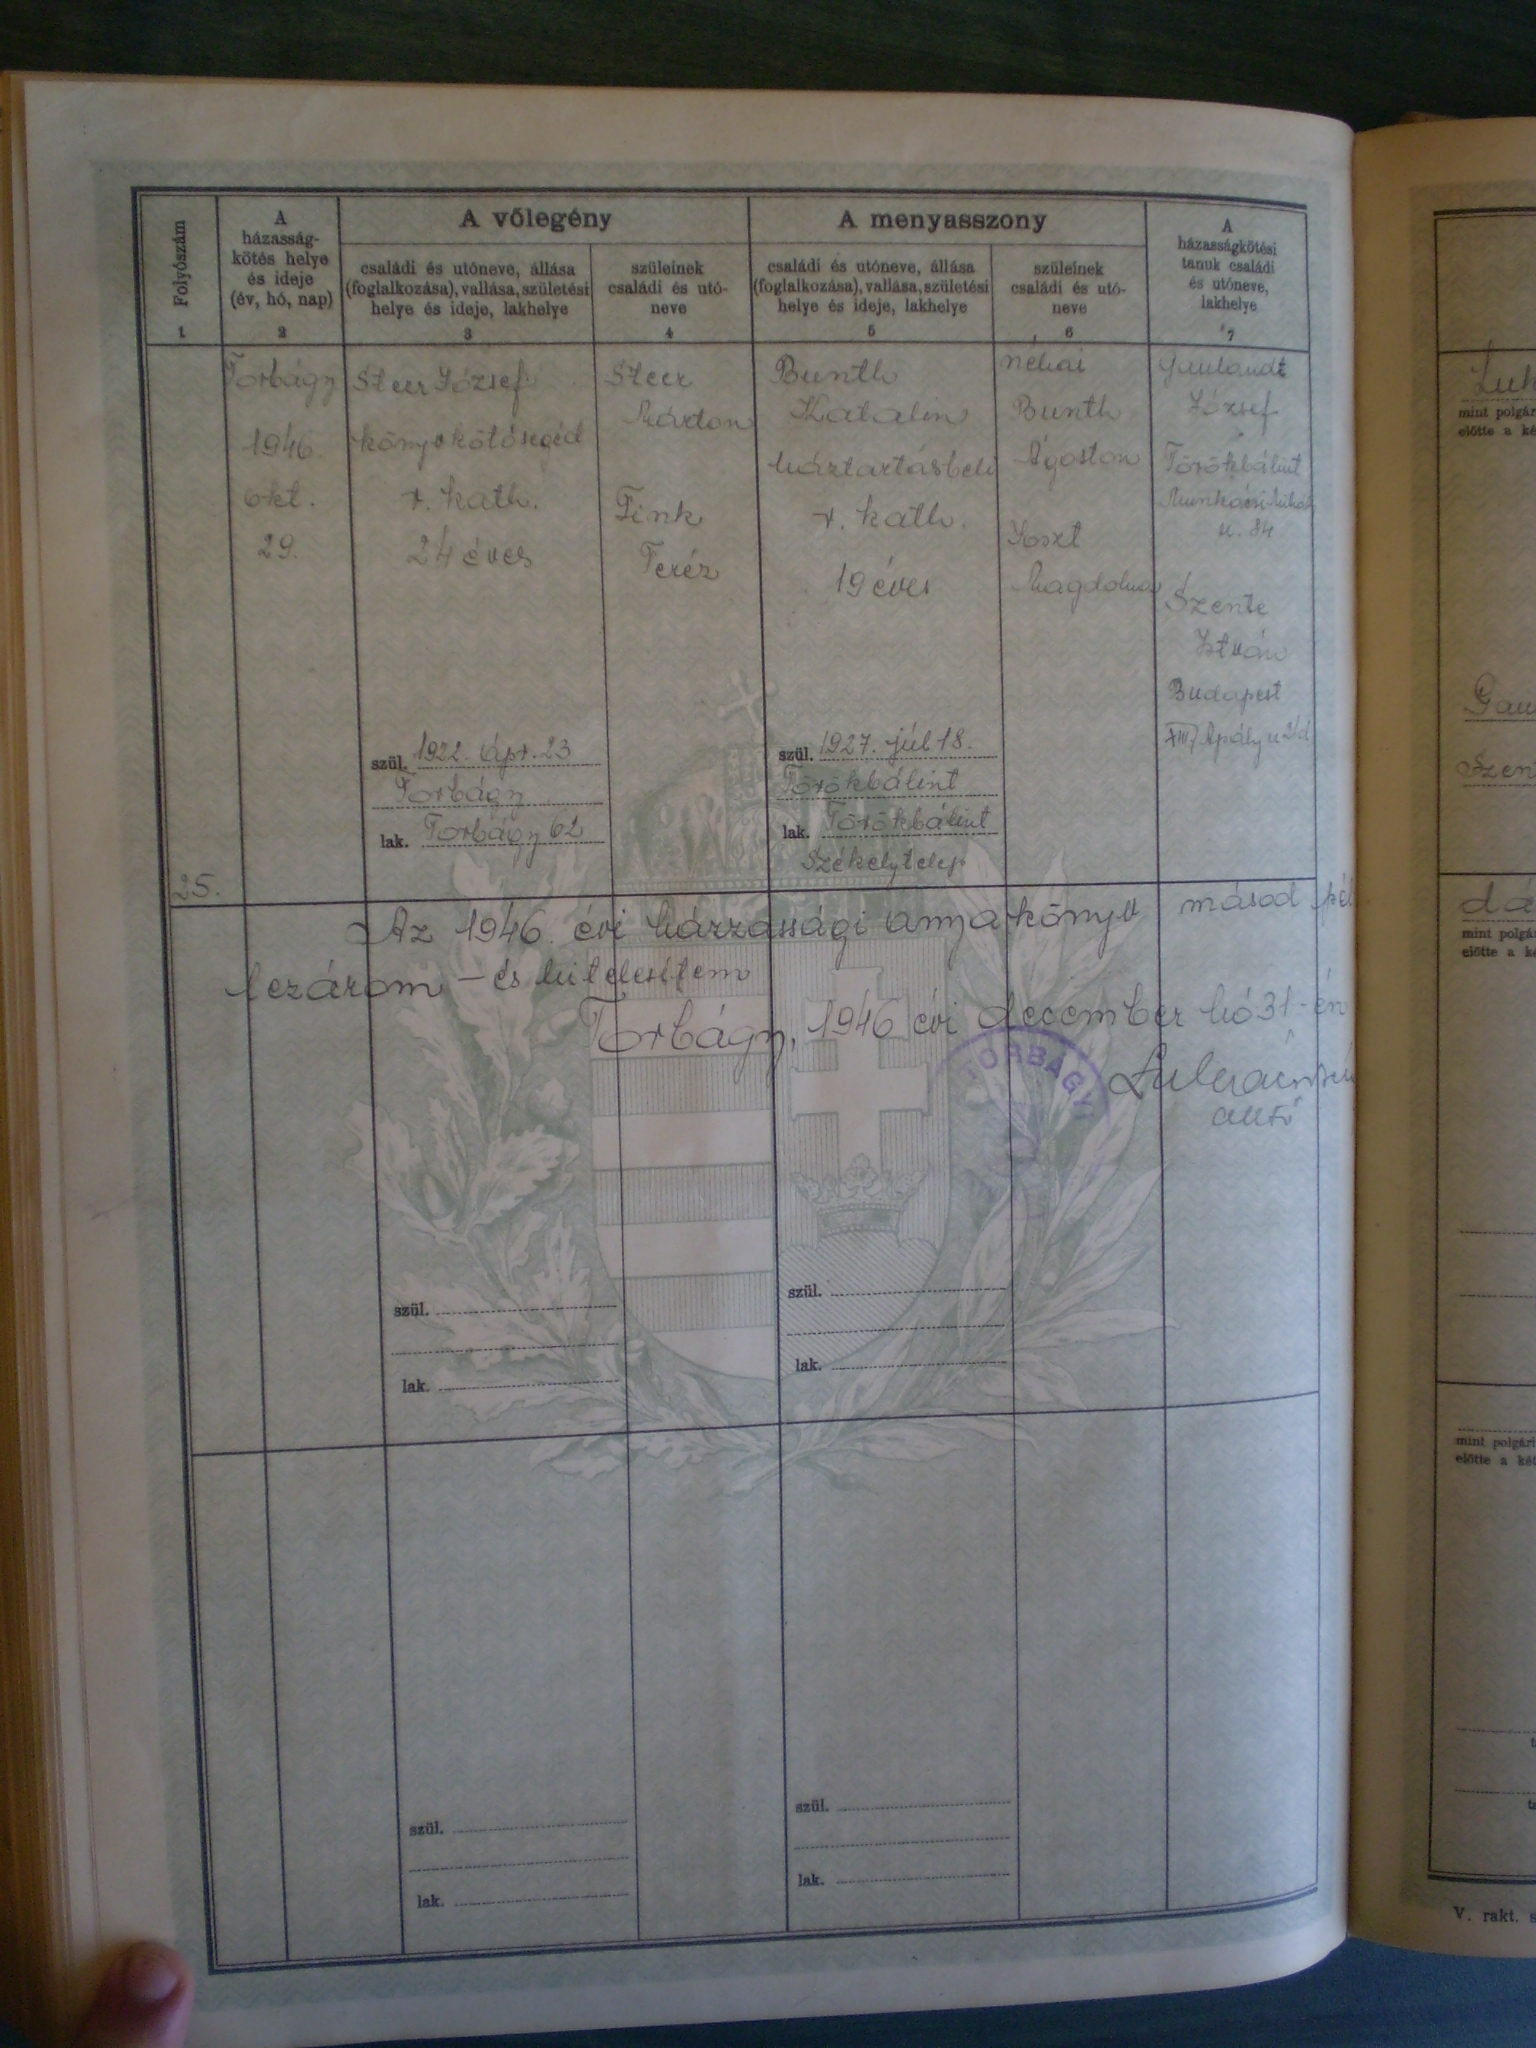 Folyószám
1
A
házasság-
kötés helye
és ideje
(év, hó, nap)
2
A vőlegény
családi és utóneve, állása
(foglalkozása), vallása, születési
helye és ideje, lakhelye
3
szüleinek
családi és utó-
neve
4
A menyasszony
családi és utóneve, állása
(foglalkozása), vallása, születési
helye és ideje, lakhelye
5
szüleinek
családi és utó-
neve
6
A
házasságkötési
tanuk családi
és utóneve,
lakhelye
7
25.
Torbágy
1946
okt.
29.
Steer József
könyvkötősegéd
r. kath.
24 éves
szül. 1922. Ápr. 23
Torbágy
lak. Torbágy 62
Steer
Márton
Fink
Teréz
Bunth
Katalin
háztartásbeli
r. kath.
19 éves
szül. 1927. júl 18.
Törökbálint
lak. Törökbálint
Székelytelep
néhai
Bunth
Ágoston
Joszt
Magdolna
József
Törökbálint
u. 84
Szente
István
Budapest
XIII Apály u
Az 1946. évi házzassági anyakönyv másod pél
lezárom - és hitelesítem
Torbágy, 1946 évi december hó 31-én
TORBÁGY
szül.
lak.
szül.
lak.
szül.
lak.
szül.
lak.
mint polgár
előtte a ké
Gau
Szen
dá
mint polgá
előtte a ké
mint polgári
előtte a ké
V. rakt. s